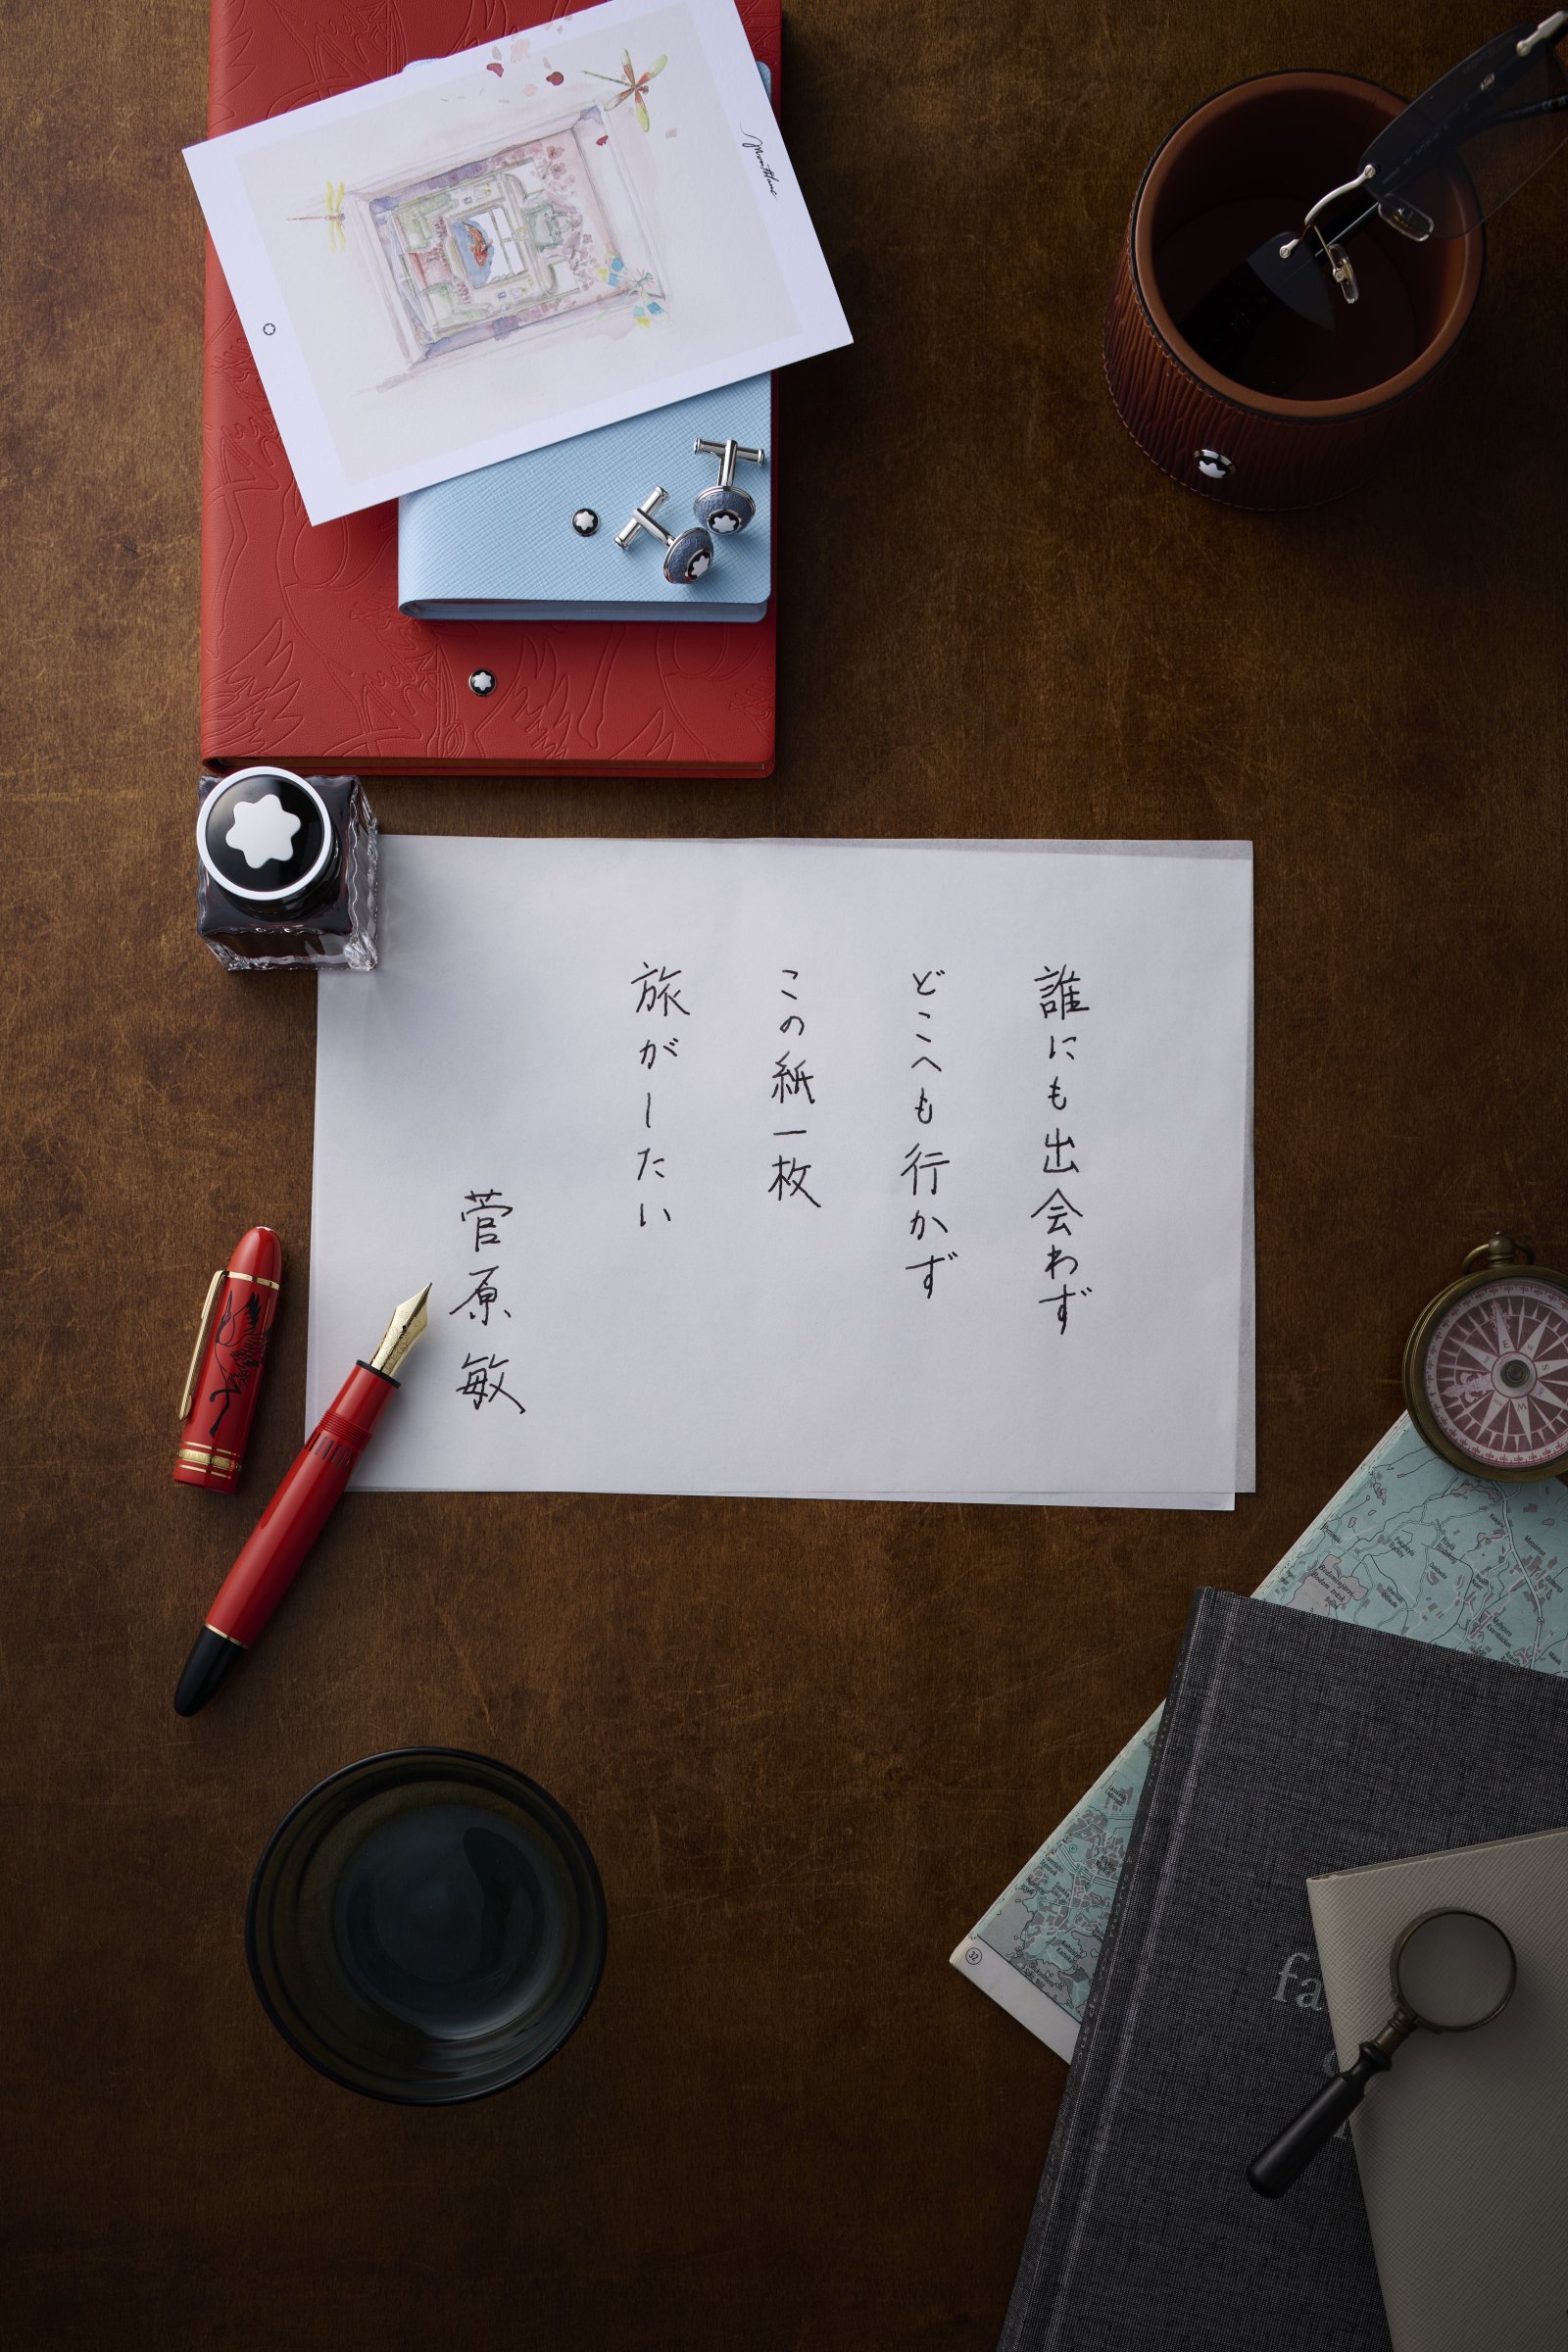 誰にも出会わず
どこへも行かず
この紙一枚
旅がしたい
菅原敏
Montblanc
fa
32
E
S
W